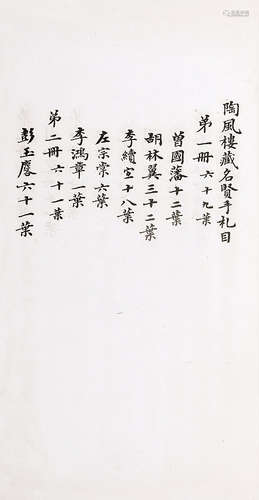 陶風樓藏名賢手札目
第一冊六十九葉
曾國藩十二葉
胡林翼三十二葉
李續宜十八葉
左宗棠六葉
李鴻章一葉
第二冊六十一葉
彭玉麐六十一葉